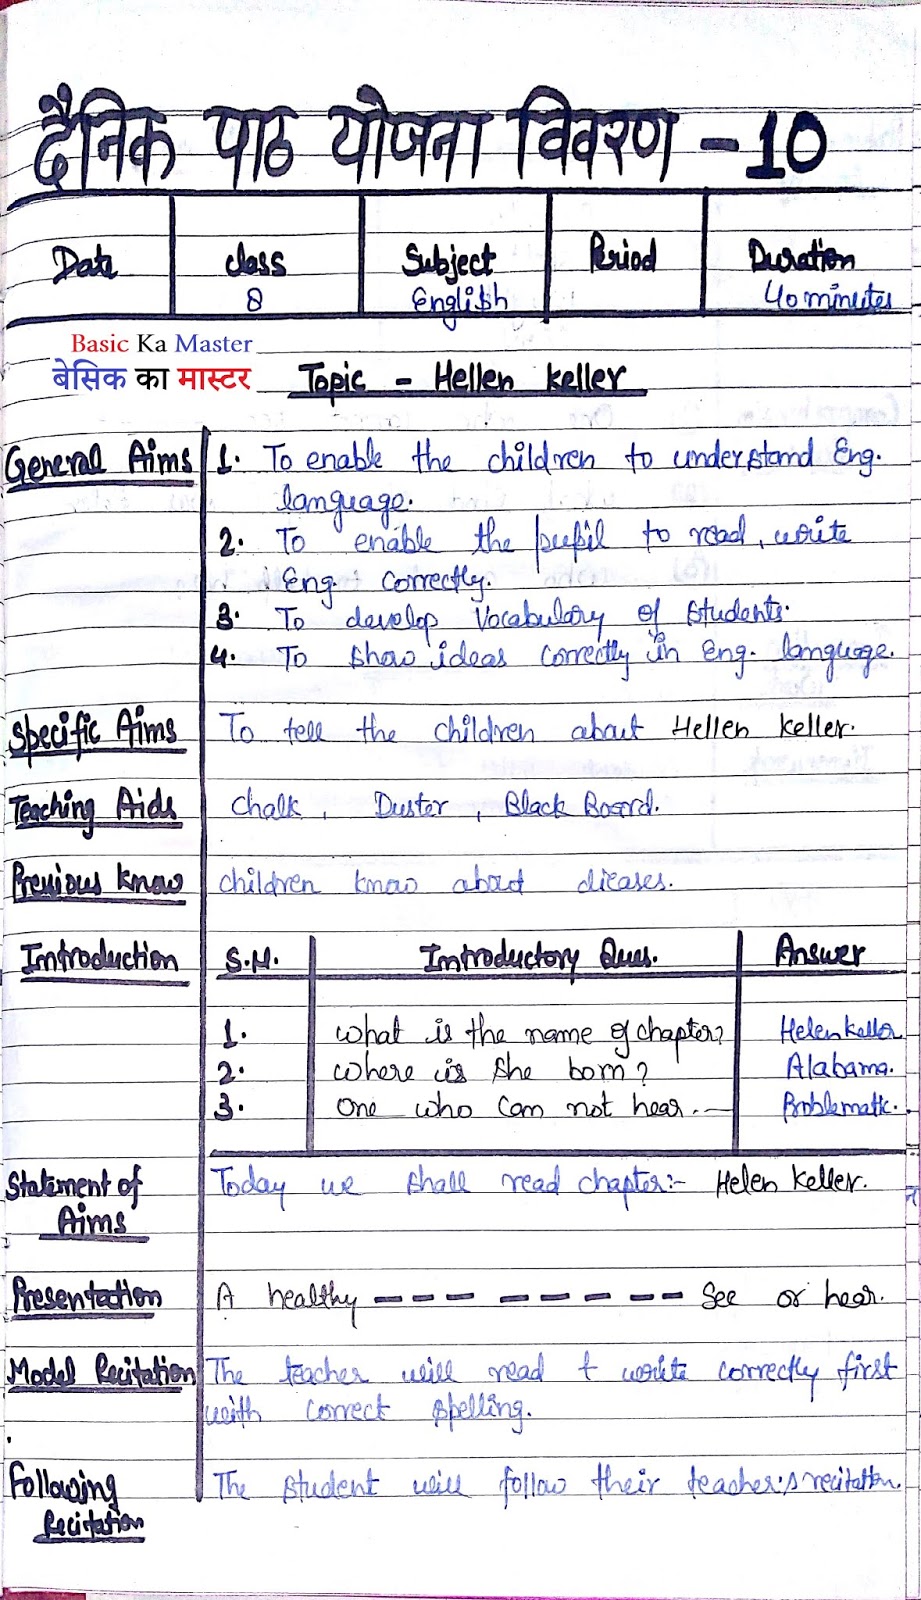 दैनिक पाठ योजना विवरण - 10
Date class Subject Period Duration
8 English 40 minutes
Basic Ka Master
बेसिक का मास्टर Topic - Hellen Keller
General Aims 1. To enable the children to understand Eng.
language.
2. To enable the pupil to read, write
Eng. correctly.
3. To develop Vocabulary of students.
4. To show ideas correctly in Eng. language.
Specific Aims To tell the children about Hellen Keller.
Teaching Aids Chalk, Duster, Black Board.
Previous Know children know about dieases.
Introduction S.N. Introductory Ques. Answer
1. What is the name of chapter? Helen Keller
2. Where is she born? Alabama.
3. One who can not hear. — Problematic.
Statement of Today we shall read chapter:- Helen Keller.
Aims
Presentection A healthy --- ------ See or hear.
Model Recitation The teacher will read & write correctly first
with correct spelling.
Following The student will follow their teacher's recitation.
Recitation